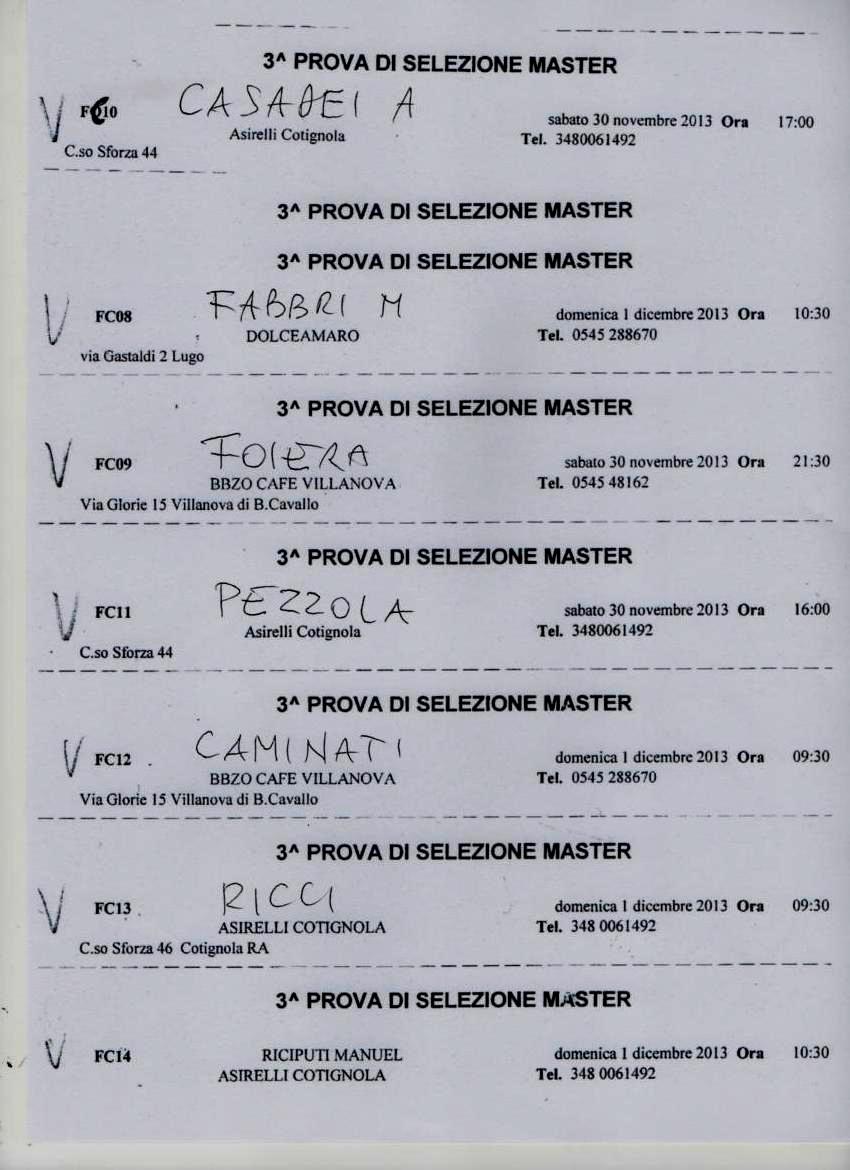 3^ PROVA DI SELEZIONE MASTER
V FC10 CASADEI A sabato 30 novembre 2013 Ora 17:00
Asirelli Cotignola Tel. 3480061492
C.so Sforza 44
3^ PROVA DI SELEZIONE MASTER
3^ PROVA DI SELEZIONE MASTER
V FC08 FABBRI M domenica 1 dicembre 2013 Ora 10:30
DOLCEAMARO Tel. 0545 288670
via Gastaldi 2 Lugo
3^ PROVA DI SELEZIONE MASTER
V FC09 FOIERA sabato 30 novembre 2013 Ora 21:30
BBZO CAFE VILLANOVA Tel. 0545 48162
Via Glorie 15 Villanova di B.Cavallo
3^ PROVA DI SELEZIONE MASTER
V FC11 PEZZOLA sabato 30 novembre 2013 Ora 16:00
Asirelli Cotignola Tel. 3480061492
C.so Sforza 44
3^ PROVA DI SELEZIONE MASTER
V FC12 CAMINATI domenica 1 dicembre 2013 Ora 09:30
BBZO CAFE VILLANOVA Tel. 0545 288670
Via Glorie 15 Villanova di B.Cavallo
3^ PROVA DI SELEZIONE MASTER
V FC13 RICCI domenica 1 dicembre 2013 Ora 09:30
ASIRELLI COTIGNOLA Tel. 348 0061492
C.so Sforza 46 Cotignola RA
3^ PROVA DI SELEZIONE MASTER
V FC14 RICIPUTI MANUEL domenica 1 dicembre 2013 Ora 10:30
ASIRELLI COTIGNOLA Tel. 348 0061492